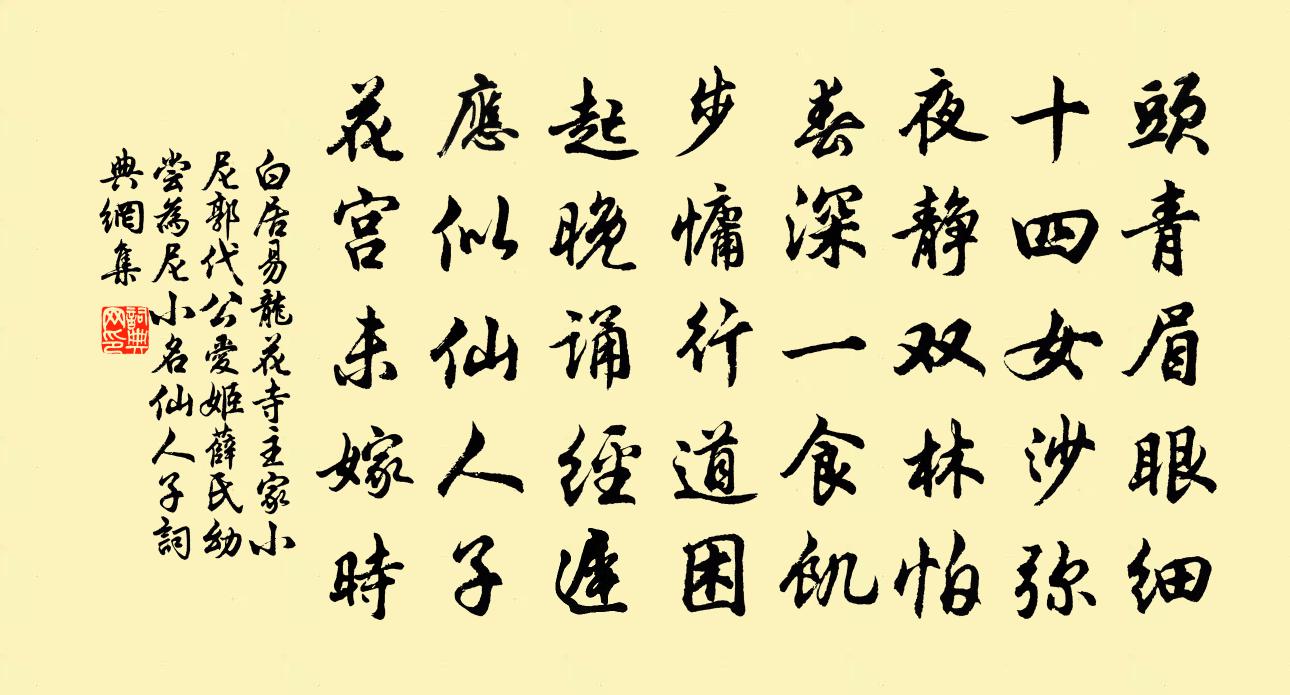 頭青眉眼细
十四女沙弥
夜静双林怕
春深一食飢
步慵行道困
起晚诵經遲
應似仙人子
花宫未嫁時
白居易龍花寺主家小
尼郭代公愛姬薛氏幼
尝為尼小名仙人子詞
典網集
詞典
网印